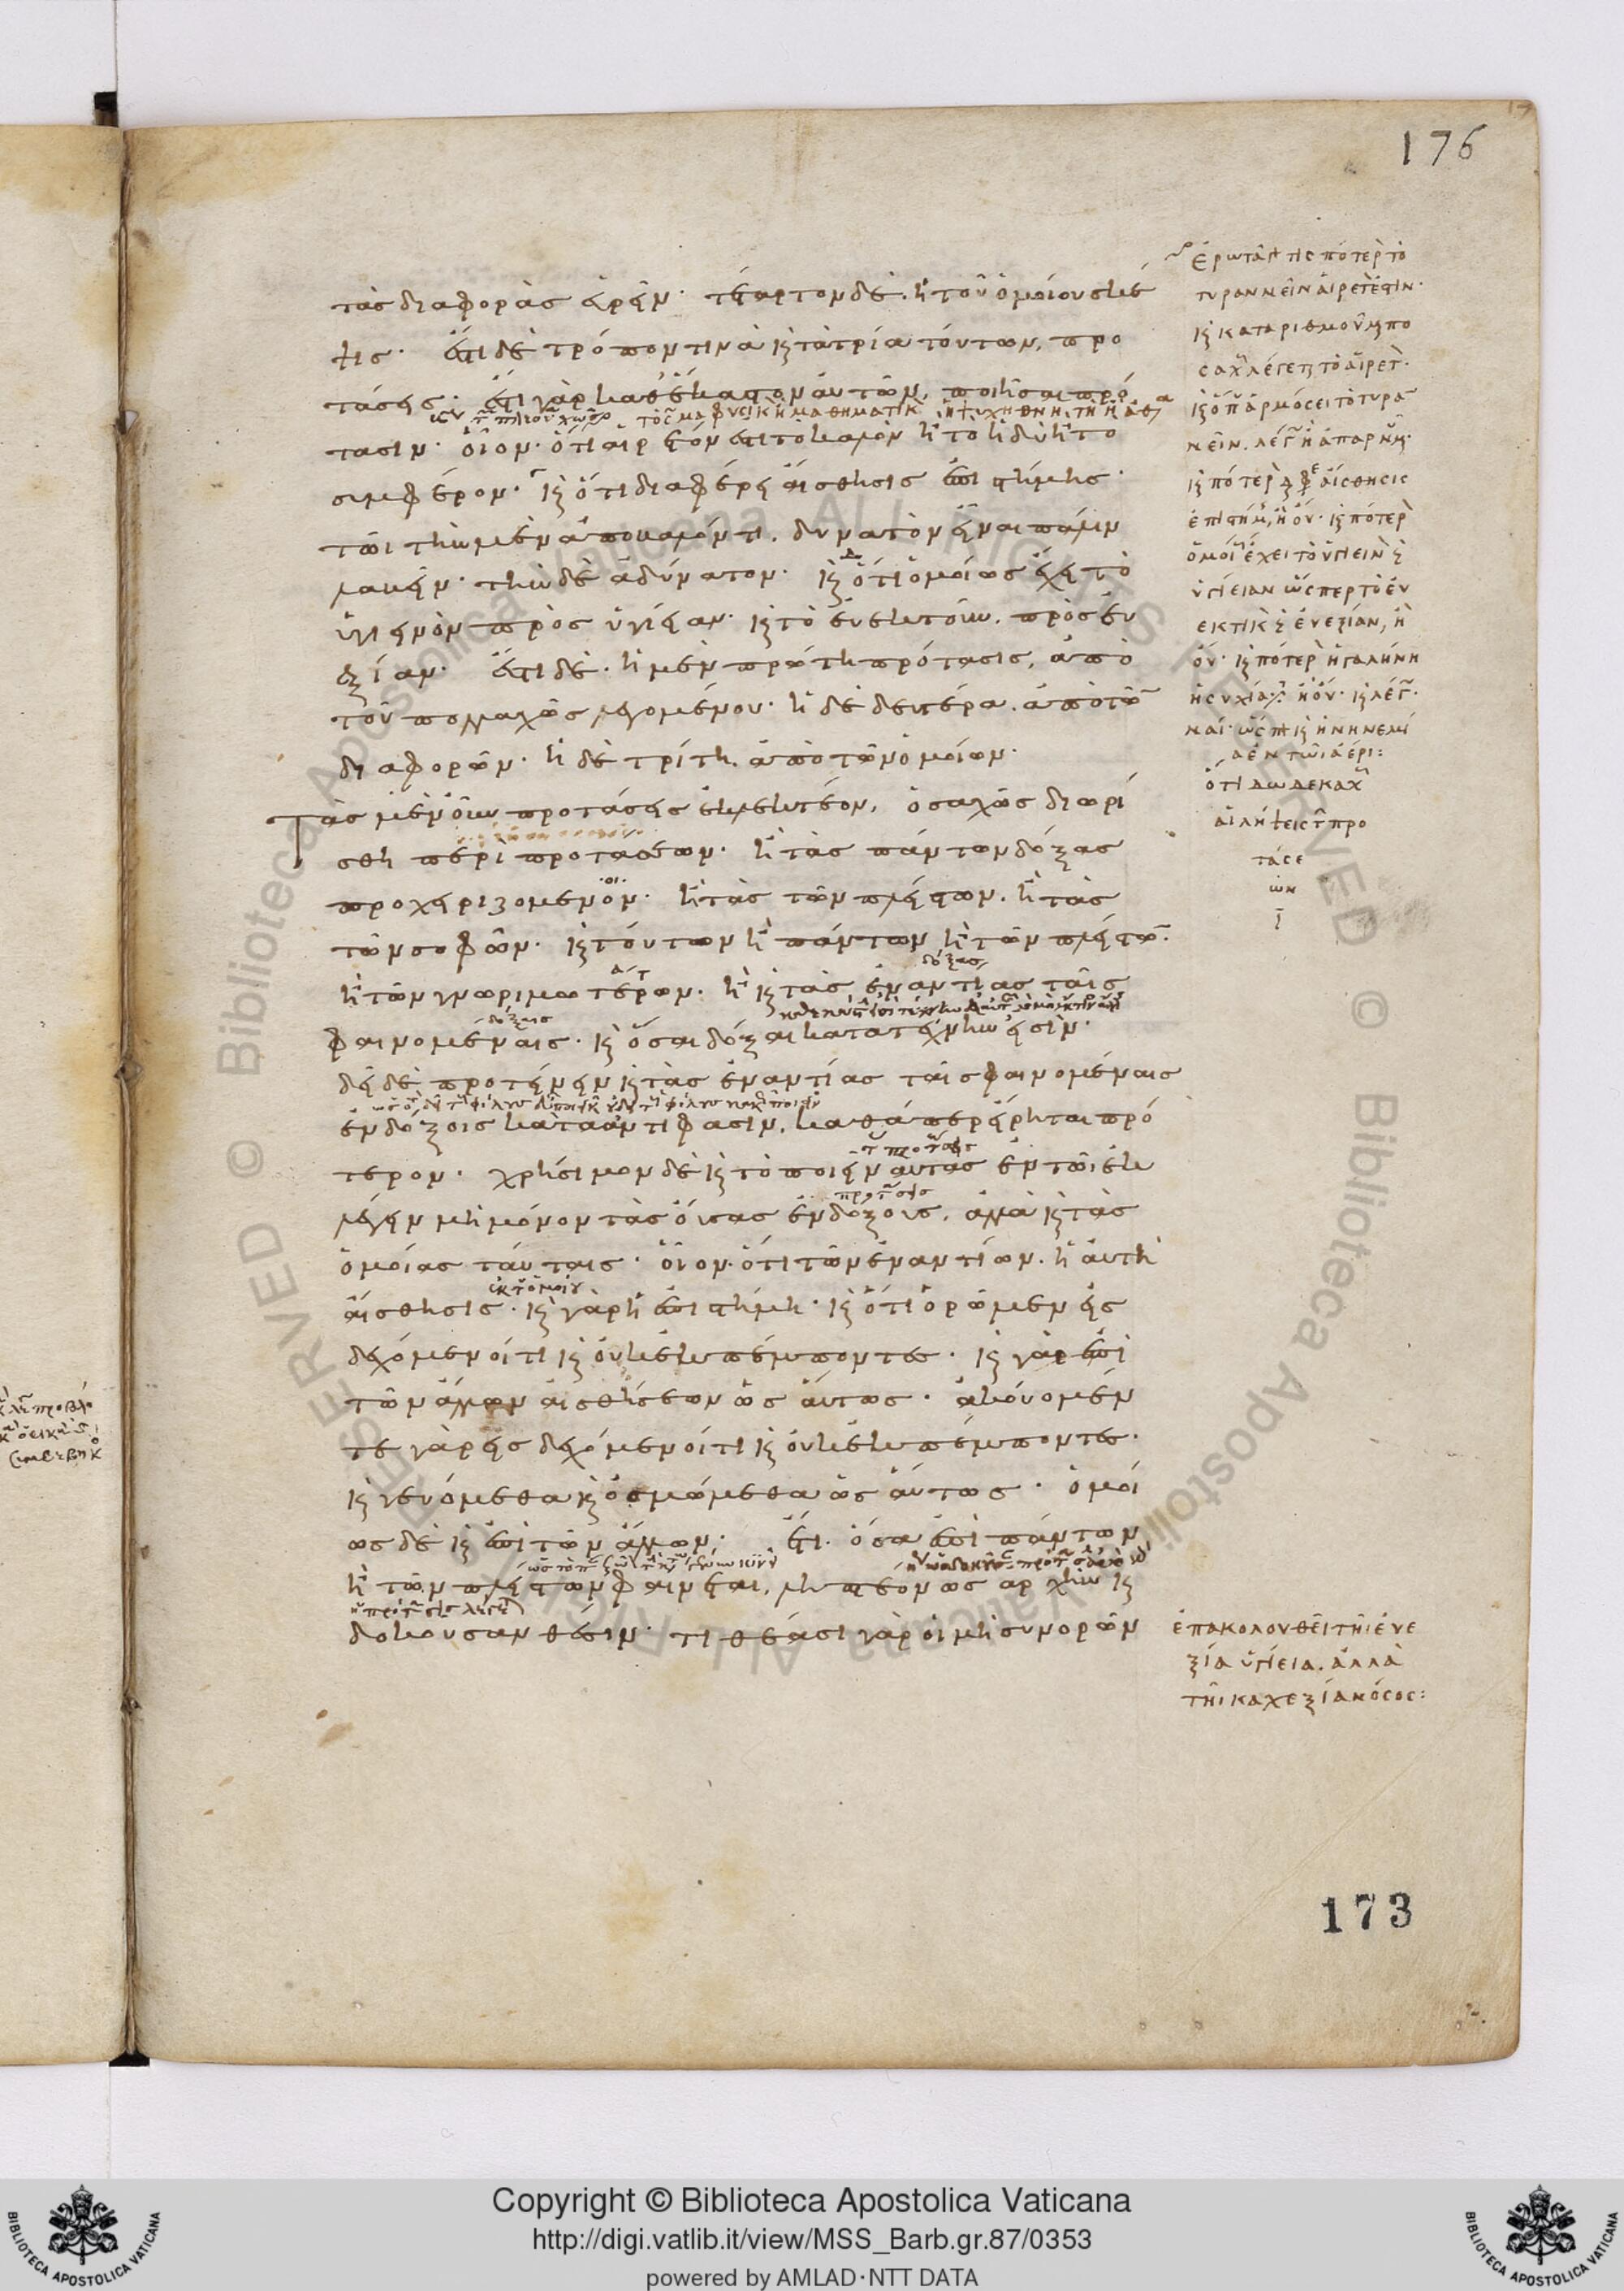 176
τὰς διαφορὰς εὑρεῖν· τέταρτον δὲ. ἡ τοῦ ὁμοίου σκέ
ψις· ἔστι δὲ τρόπον τινὰ κ τὰ τρία τούτων, προ
τάσεις· ἔστι γὰρ καθ' ἕκαστον αὐτῶν, ποιῆσαι πρό
τασιν· οἷον· ὅτι αἱρετόν ἐστι τὸ καλὸν ἢ τὸ ἡδὺ ἢ τὸ
συμφέρον· κ ὅτι διαφέρει αἴσθησις ἐπιστήμης·
τῶι τὴν μὲν ἀποβαλόντι, δυνατὸν εἶναι πάλιν
λαβεῖν· τὴν δὲ ἀδύνατον· κ ὅτι ὁμοίως ἔχει τὸ
ὑγιεινὸν πρὸς ὑγίειαν· κ τὸ εὐεκτικὸν, πρὸς εὐ
εξίαν· ἔστι δὲ· ἡ μὲν πρώτη πρότασις, ἀπὸ
τοῦ πολλαχῶς λεγομένου· ἡ δὲ δευτέρα, ἀπὸ τῶν
διαφορῶν· ἡ δὲ τρίτη, ἀπὸ τῶν ὁμοίων·
Τὰς μὲν οὖν προτάσεις ἐκλεκτέον, ὁσαχῶς διωρί
σθη περὶ προτάσεων· ἢ τὰς πάντων δόξας
προχειριζομενον· ἢ τὰς τῶν πλείστων. ἢ τὰς
τῶν σοφῶν· κ τούτων ἢ πάντων ἢ τῶν πλείστων·
ἢ τῶν γνωριμωτέρων· ἢ κ τὰς ἐναντίας ταῖς
φαινομέναις· κ ὅσαι δόξαι κατὰ τέχνην εἰσίν·
δεῖ δὲ προτείνειν κ τὰς ἐναντίας ταῖς φαινομέναις
ἐνδόξοις κατὰ ἀντίφασιν, καθάπερ εἴρηται πρό
τερον· χρήσιμον δὲ κ τὸ ποιεῖν αὐτὰς ἐν τῶι ἐκ
λέγειν μὴ μόνον τὰς οὔσας ἐνδόξους, ἀλλὰ κ τὰς
ὁμοίας ταύταις· οἷον· ὅτι τῶν ἐναντίων. ἡ αὐτὴ
αἴσθησις· κ γὰρ ἡ ἐπιστήμη· κ ὅτι ὁρῶμεν εἰς
δεχόμενοί τι κ οὐκ ἐκπέμποντες· κ γὰρ ἐπὶ
τῶν ἄλλων αἰσθήσεων ὡς αύτως· ἀκούομέν
τε γὰρ εἰς δεχόμενοί τι κ οὐκ ἐκπέμποντες·
κ γευόμεθα κ ὀσμώμεθα ὡς αύτως· ὁμοί
ως δὲ κ ἐπὶ τῶν ἄλλων· ἔτι· ὅσα ἐπὶ πάντων
ἢ τῶν πλείστων φαίνεται, ληπτέον ὡς ἀρχὴν κ
δοκοῦσαν θέσιν· τιθέασι γὰρ οἱ μὴ συνορῶν
ἐρωτᾶι τις πότερ τὸ
τυραννεῖν αἱρετέστιν·
κ καταριθμοῦμ πο
σαχ λέγετ τὸ αἱρετ·
κ ὅπ ἁρμόσει τὸ τυρα
νεῖν. λέγ ἢ ἀπαρν·
κ πότερ διαφ αἴσθησις
ἐπιστήμ, ἢ οὔ· κ πότερ
ὁμοί ἔχει τὸ ὑγιεινὸ
ὑγίειαν ὥσπερ τὸ εὐ
εκτικ εὐεξίαν, ἢ
οὔ· κ πότερ ἡ γαλήνη
ἡσυχία ἢ οὔ· κ λέγ·
ναί· ὥσπ κ ἡ νηνεμί
α ἐν τῶι ἀέρι:
ὅτι δωδεκαχ
αἱ λήψεις τ προ
τάσε
ων
ἐπακολουθεῖ τῆι εὐε
ξία ὑγίεια. ἀλλὰ
τῆι καχεξία νόσος:
173
Copyright © Biblioteca Apostolica Vaticana
http://digi.vatlib.it/view/MSS_Barb.gr.87/0353
powered by AMLAD·NTT DATA